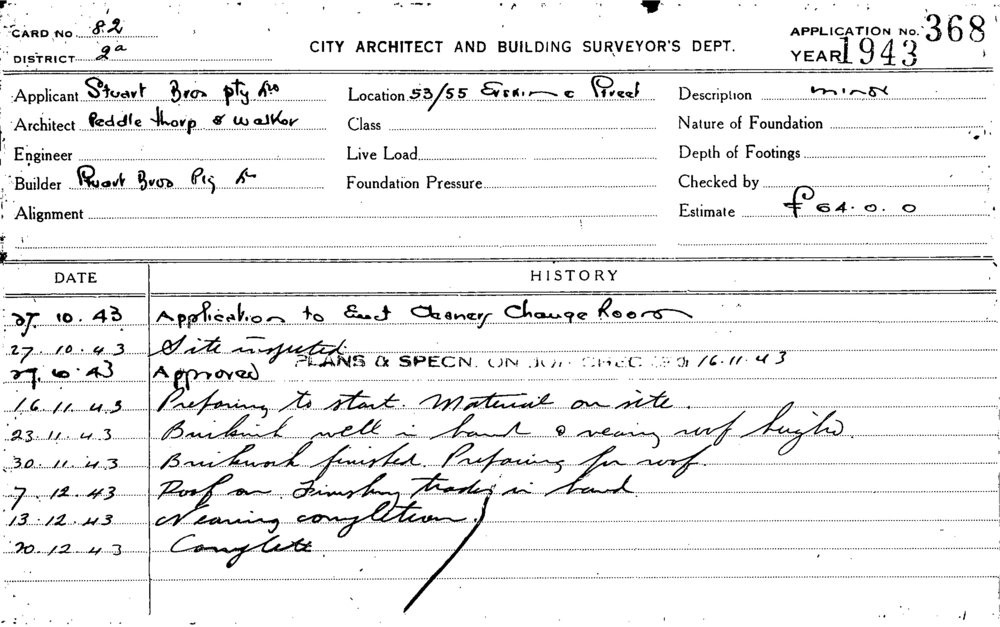 CARD NO 82
DISTRICT 9a
CITY ARCHITECT AND BUILDING SURVEYOR'S DEPT.
APPLICATION NO. 368
YEAR 1943
Applicant Stuart Bros Pty Ltd
Architect Peddle Thorp & Walker
Engineer
Builder Stuart Bros Pty Ltd
Alignment
Location 53/55 Erskine Street
Class
Live Load
Foundation Pressure
Description minor
Nature of Foundation
Depth of Footings
Checked by
Estimate £64.0.0
DATE HISTORY
27.10.43 Application to Erect Cleaners Change Room
27.10.43 Site inspected
PLANS & SPECN. ON JOB CHECKED 16.11.43
Approved
16.11.43 Preparing to start. Material on site.
23.11.43 Brickwork well in hand & nearing roof height.
30.11.43 Brickwork finished. Preparing for roof.
7.12.43 Roof on Finishing trades in hand
13.12.43 Nearing completion.
20.12.43 Complete.